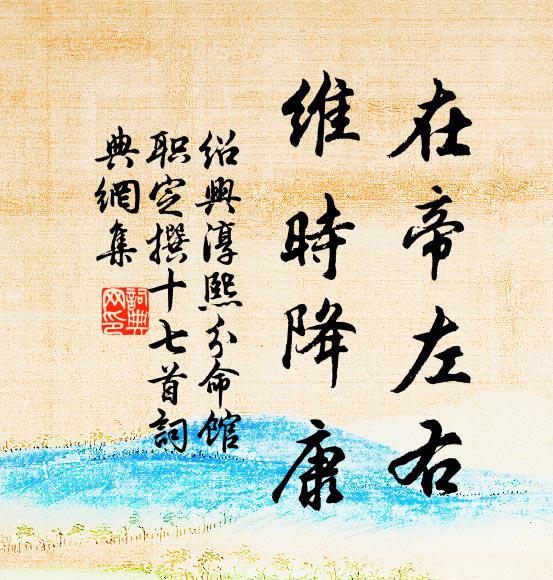 在帝左右
维時降康
绍興淳熙分命馆
职定撰十七首詞
典網集
詞典
网印